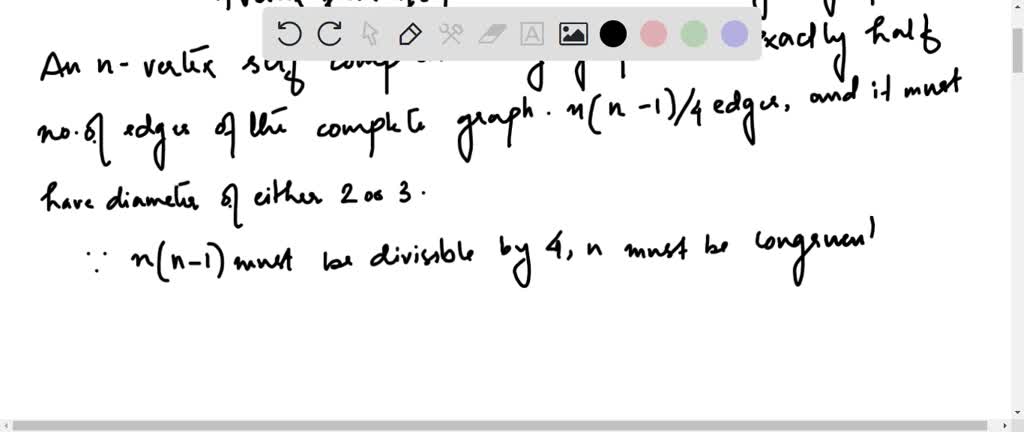 An n-vertex self exactly half
no. of edges of the complete graph. n(n-1)/4 edges, and it must
have diameter of either 2 or 3.
∵ n(n-1) must be divisible by 4, n must be congruent
A